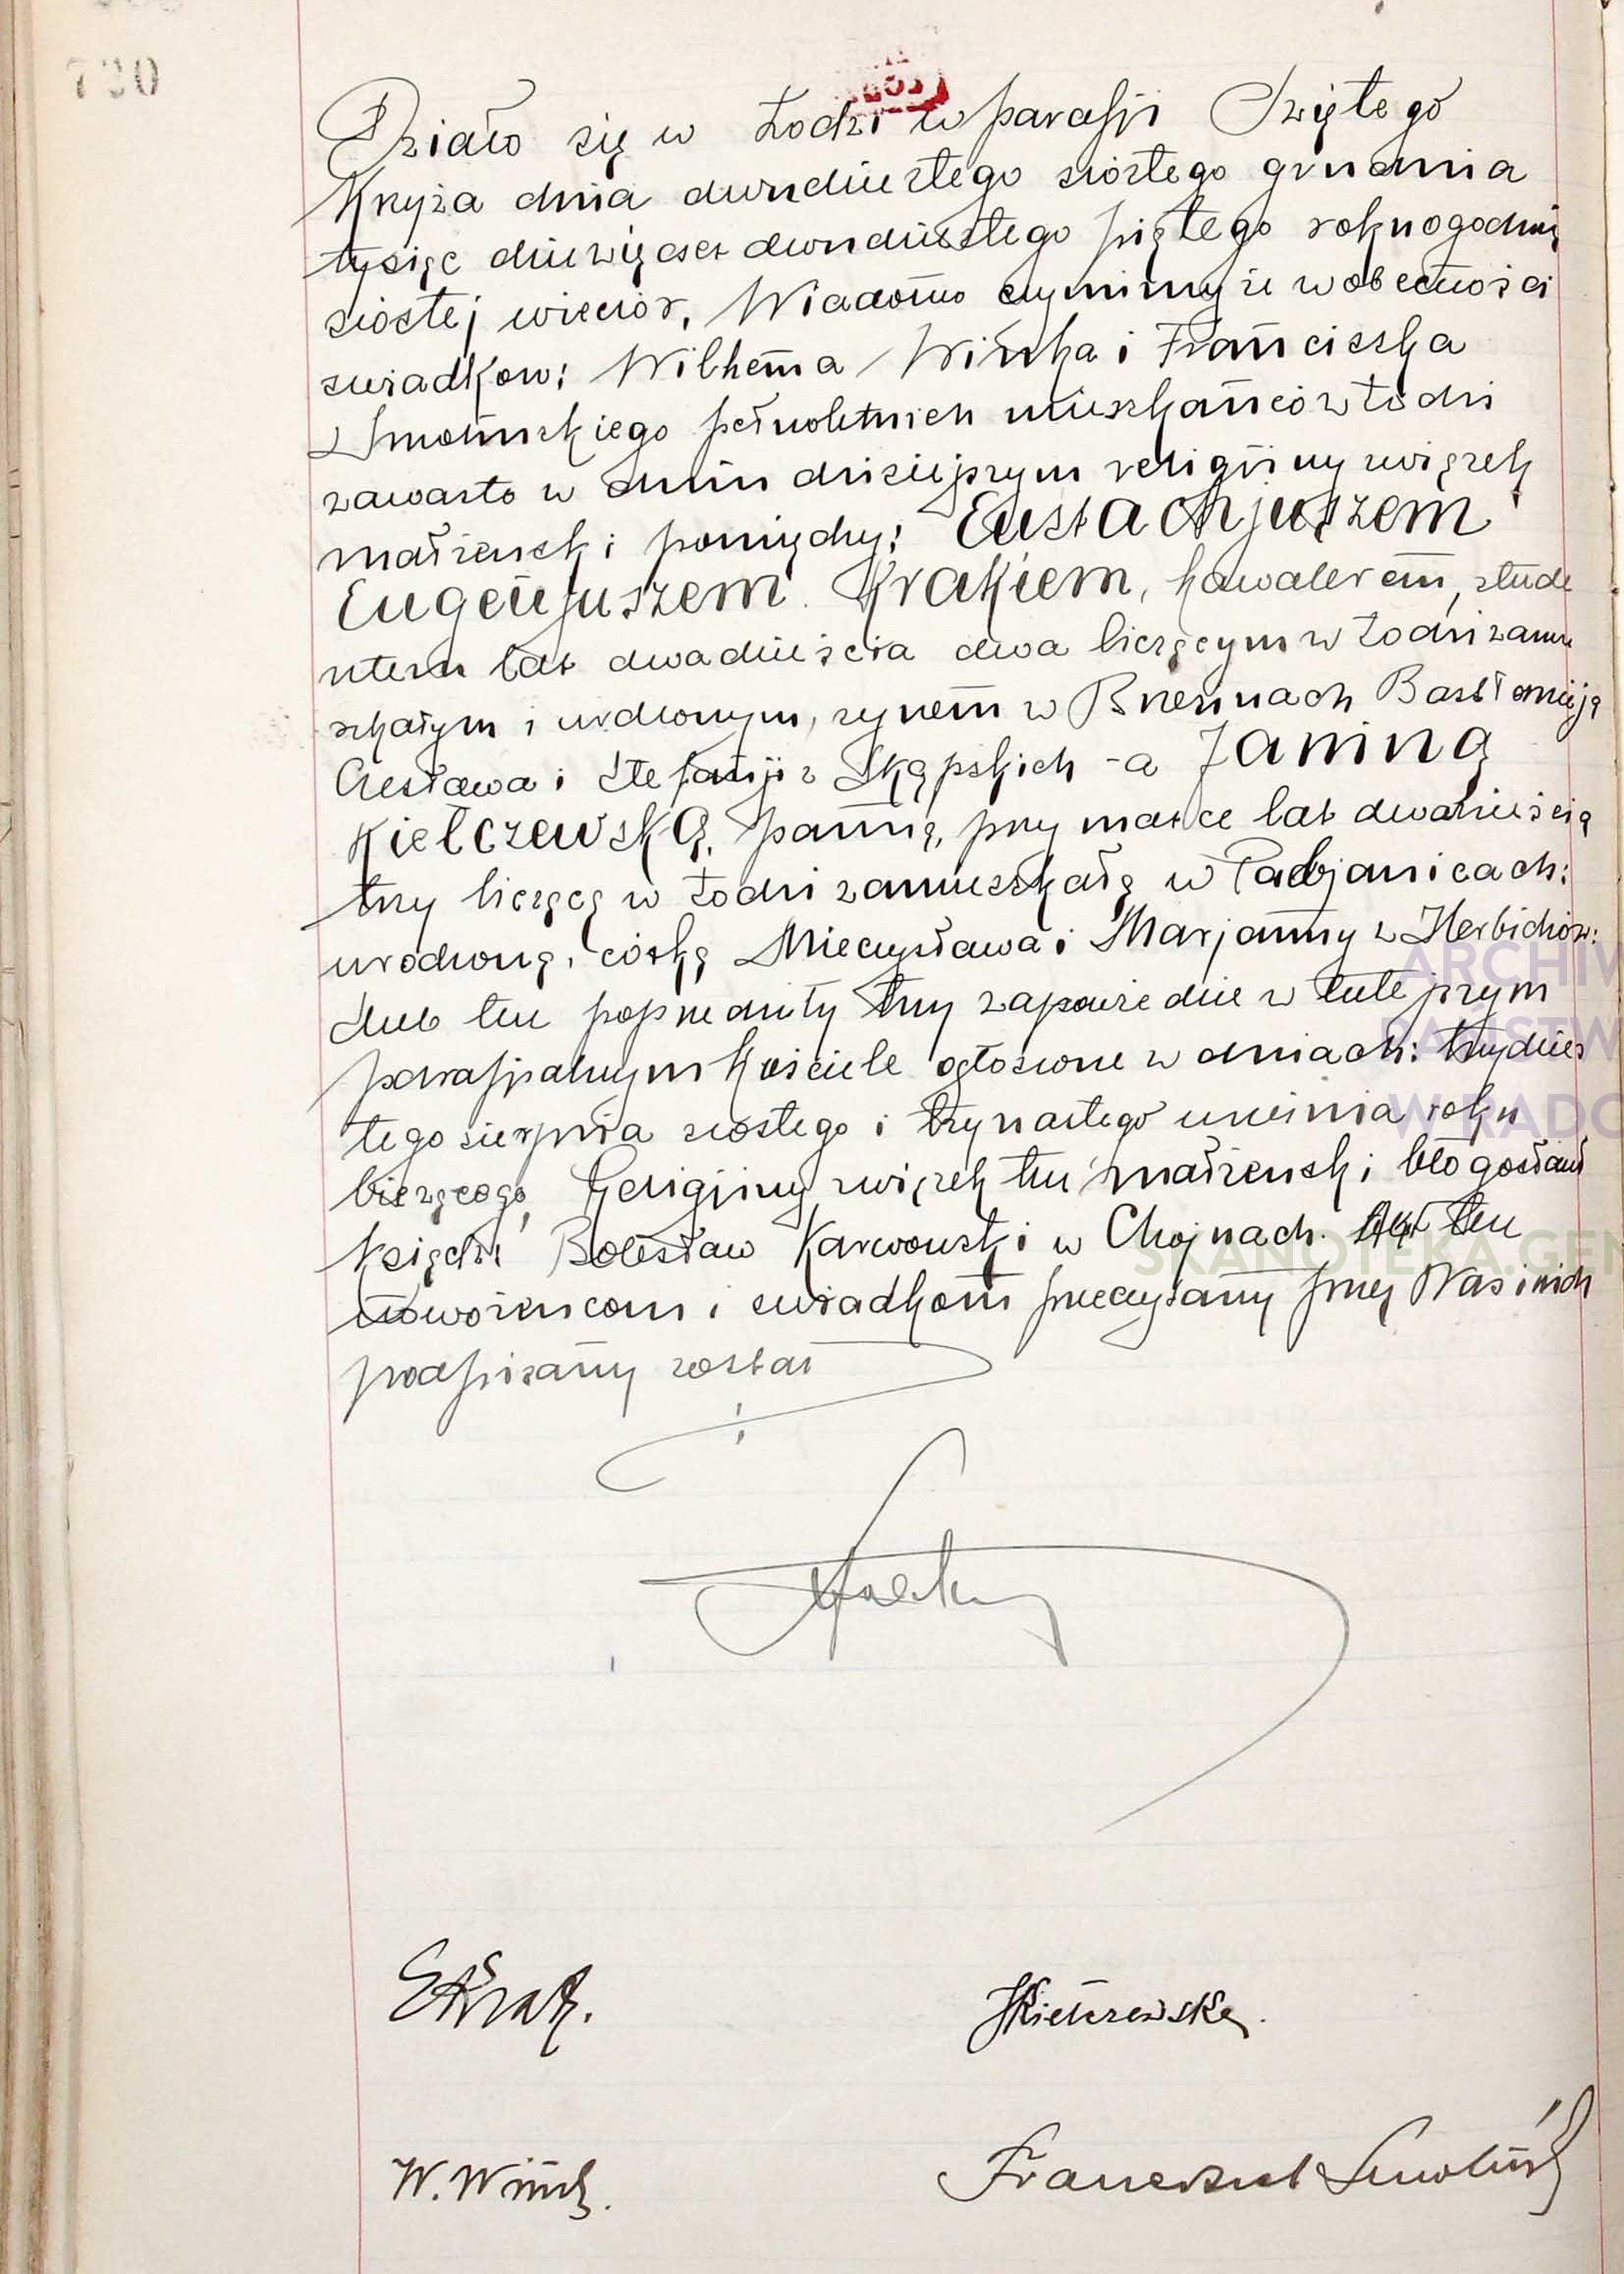 730
Działo się w Łodzi w parafji Świętego
Krzyża dnia dwudziestego szóstego grudnia
tysiąc dziewięćset dwudziestego piątego roku o godzinie
szóstej wieczór. Wiadomo czynimy że w obecności
świadków: Wilhelma Wincka i Franciszka
Smolińskiego pełnoletnich mieszkańców Łodzi
zawarto w dniu dzisiejszym religijny związek
małżeński pomiędzy: Eustachjuszem
Eugenjuszem Krakiem, kawalerem, stude
ntem lat dwadzieścia dwa liczącym w Łodzi zamie
szkałym i urodzonym, synem w Brzezinach Bartłomieja
Czesława i Stefanji z Skąpskich - a Janiną
Kiełczewską, panną, przy matce lat dwadzieścia
trzy liczącą w Łodzi zamieszkałą w Pabjanicach:
urodzoną, córką Mieczysława i Marjanny z Herbichów:
Ślub ten poprzedziły trzy zapowiedzie w tutejszym
parafjalnym kościele ogłoszone w dniach: trzydzies
tego sierpnia szóstego i trzynastego września roku
bieżącego. Religijny związek ten małżeński błogosławił
ksiądz Bolesław Karwowski w Chojnach. Akt ten
nowożeńcom i świadkom przeczytany przez Nas i nich
podpisany został
EKrak.
JKiełczewska.
W. Winck.
Franciszek Smoliński
ARCHIW
PAŃSTW
W RADO
SKANOTEKA.GEN